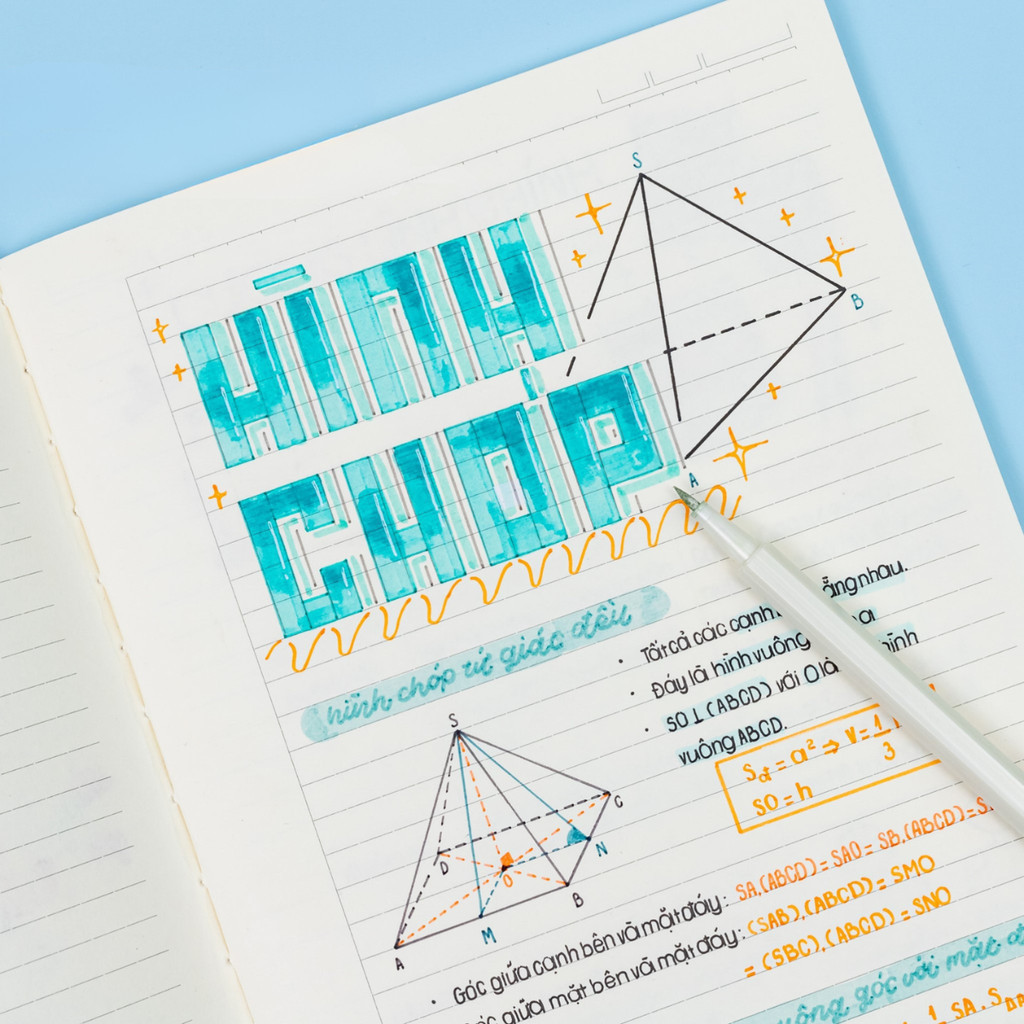 HÌNH
CHÓP
S
B
A
hình chóp tứ giác đều
• Tất cả các cạnh ằng nhau.
• Đáy là hình vuông
• SO ⊥ (ABCD) với O là hình
vuông ABCD.
S
C
D
N
O
B
M
A
Sđ = a² ⇒ V = 1/3
SO = h
• Góc giữa cạnh bên và mặt đáy: SA,(ABCD) = SAO = SB,(ABCD) = S
góc giữa mặt bên và mặt đáy: (SAB),(ABCD) = SMO
= (SBC),(ABCD) = SNO
uông góc với mặt đ
1 . SA . S